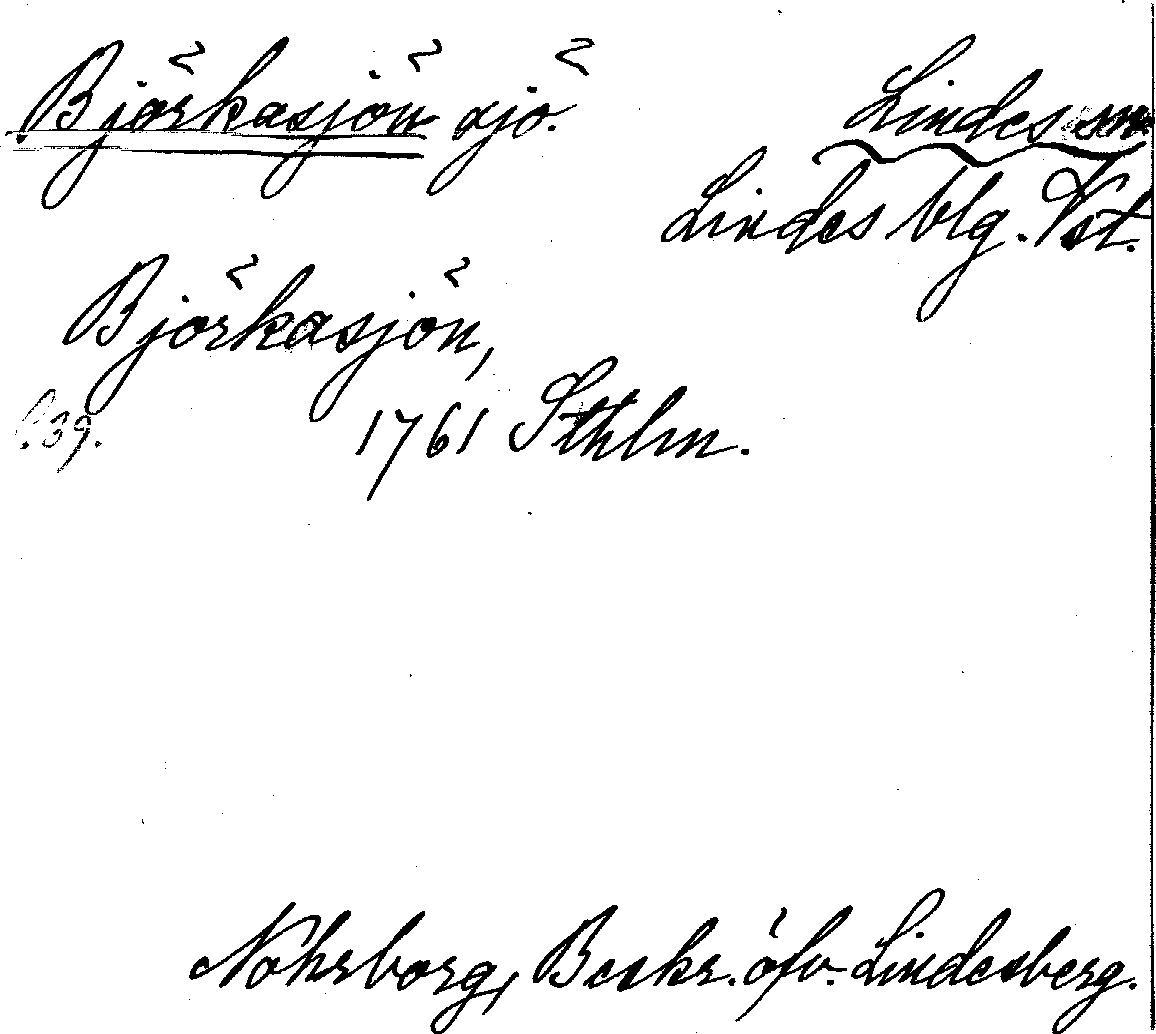 Björkasjön sjö. Lindes sn
Lindes blg. Vst.
Björkasjön,
s. 39. 1761 Sthlm.
Nohrborg, Beskr. öfv. Lindesberg.